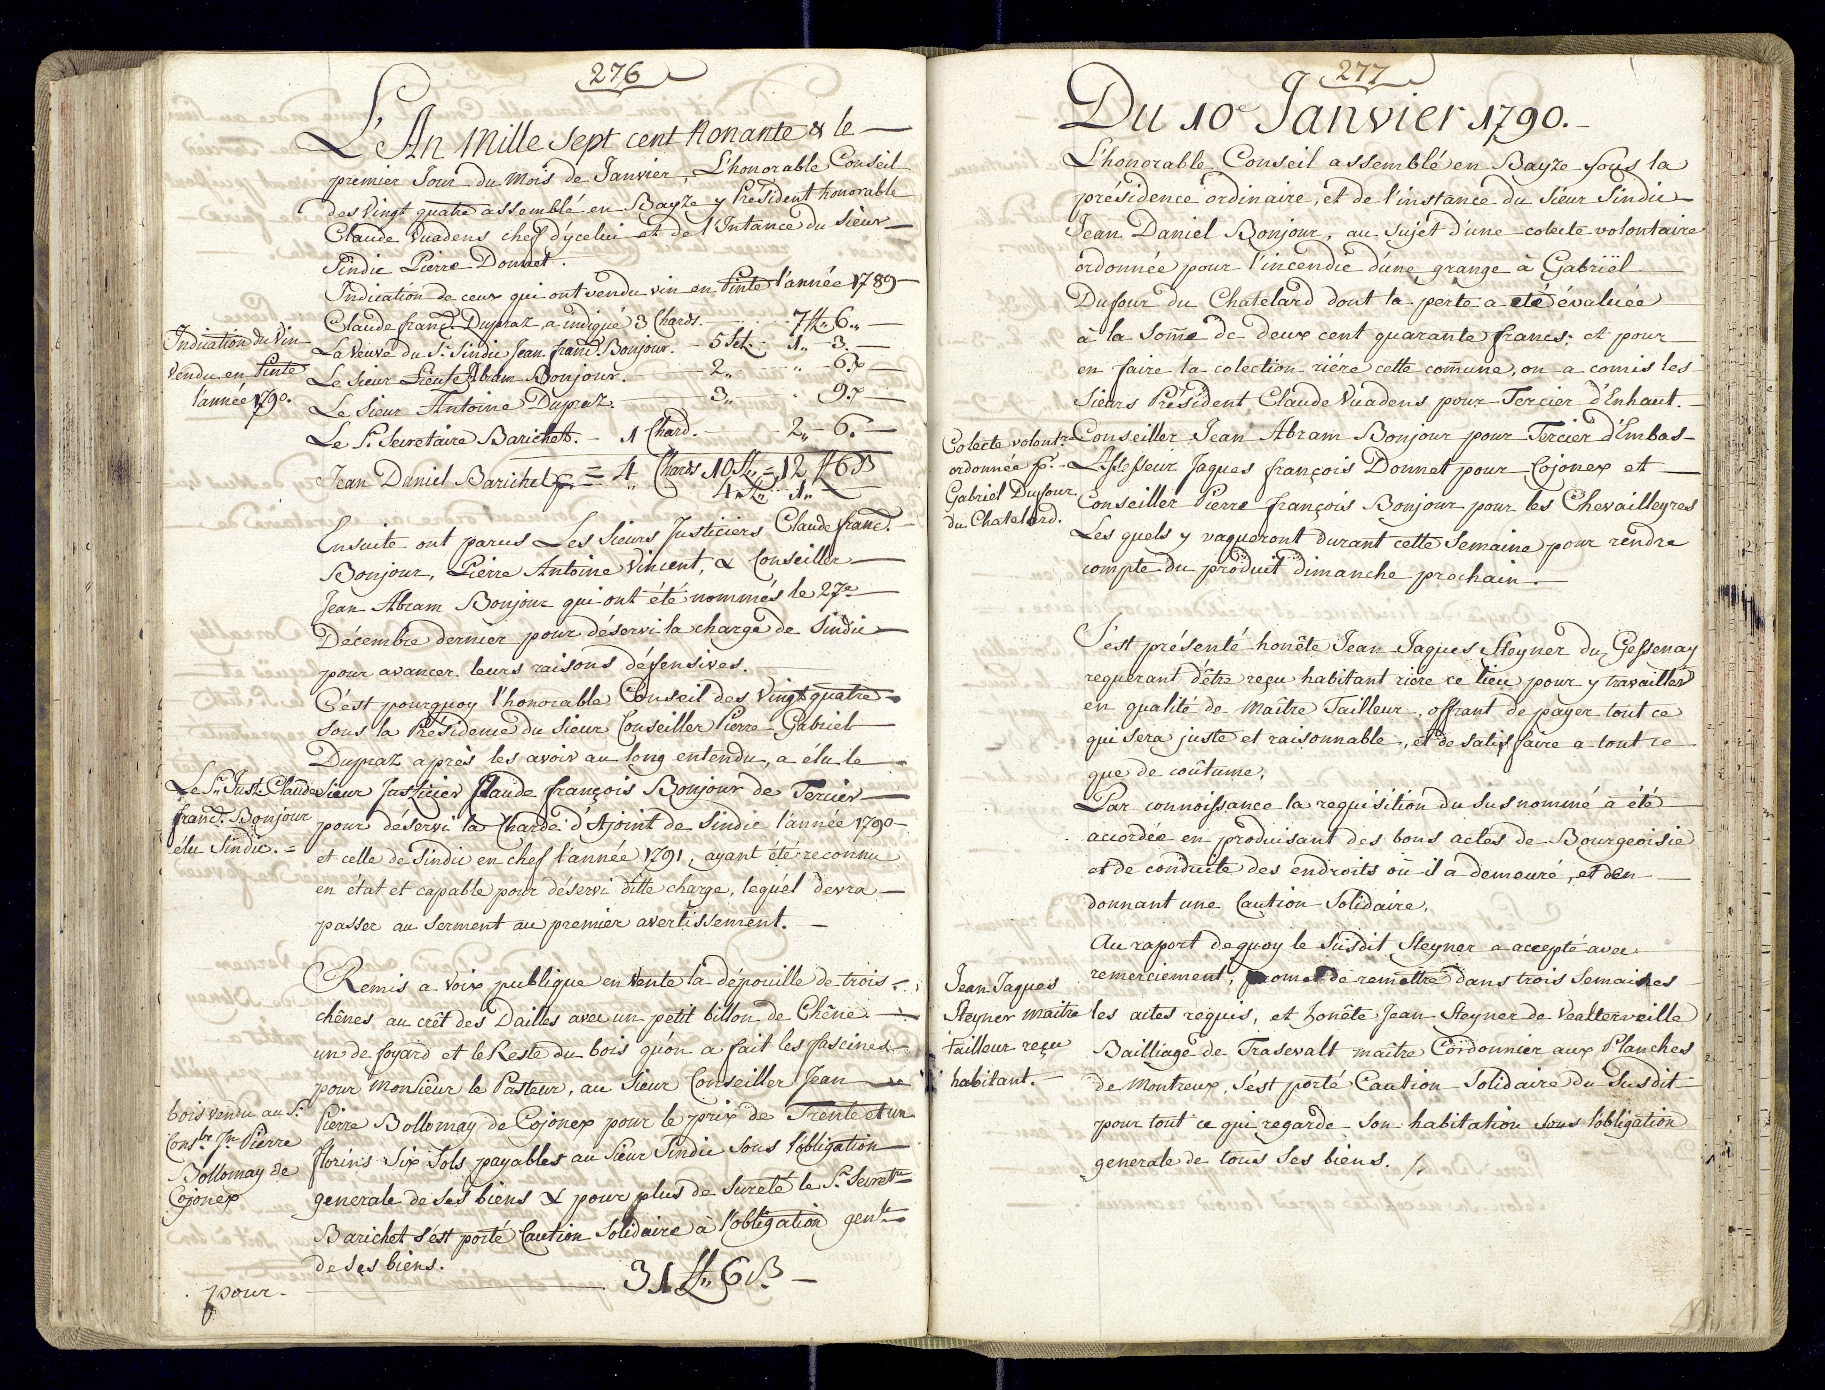 276
L'An Mille Sept cent Nonante & le
premier Jour du Mois de Janvier, L'honorable Conseil
des Vingt quatre assemblé en Bayze y Président honorable
Claude Vuadens chef d'ycelui et de l'Intance du Sieur
Sindic Pierre Donnet.
Indication de ceux qui ont vendu vin en Pinte l'année 1789
Claude franç. Dupraz, a indiqué 3 Chards. 7 ff. 6.,
Indication du Vin
vendu en Pinte
l'année 1790.
La Veuve du Sr. Sindic Jean franç. Bonjour. 5 Set. 1.. 3.
Le Sieur Lieut. Abram Bonjour. 2.. .. 6.
Le Sieur Antoine Dupraz. 3.. 9.
Le Sr. Secretaire Barichet. 1 Chard. 2.. 6.
Jean Daniel Barichet = 4 Chards 10 St. = 12 ff 6 ß
4.. St.. 1..
Ensuite ont parus Les Sieurs Justiciers Claude franç.
Bonjour, Pierre Antoine Vincent, & Conseiller
Jean Abram Bonjour qui ont été nommés le 27e
Décembre dernier pour déservi la charge de Sindic
pour avancer leurs raisons défensives.
C'est pourquoy l'honorable Conseil des Vingt quatre
sous la Présidence du Sieur Conseiller Pierre Gabriel
Dupraz après les avoir au long entendu, a élu le
Le Sr. Just. Claude
franç. Bonjour
élu Sindic. =
Sieur Justicier Claude françois Bonjour de Tercier
pour déservi la Charde d'Ajoint de Sindic l'année 1790
et celle de Sindic en chef l'année 1791, ayant été reconnu
en état et capable pour déservi ditte charge, lequel devra
passer au serment au premier avertissement.
Remis a voix publique en vente la dépouille de trois
chênes au crêt des Dailles avec un petit billon de Chêne
un de foyard et le Reste du bois qu'on a fait les fascines
pour Monsieur le Pasteur, au Sieur Conseiller Jean
bois vendu au Sr.
Consler Jn. Pierre
Bollomay de
Cojonex
Pierre Bollomay de Cojonex pour le prix de Trente et un
florins Six Sols payables au Sieur Sindic sous l'obligation
generale de ses biens & pour plus de sureté le Sr. Secretre
Barichet s'est porté Caution Solidaire à l'obligation genle
de ses biens.
31 ff. 6 ß.
pour
277
Du 10e Janvier 1790.
L'honorable Conseil assemblé en Bayze sous la
présidence ordinaire, et de l'instance du Sieur Sindic
Jean Daniel Bonjour, au sujet d'une colecte volontaire
ordonnée pour l'incendie d'une grange à Gabriël
Dufour du Chatelard dont la perte a été évaluée
à la Some de deux cent quarante francs; et pour
en faire la colection riére cette comune, on a comis les
Sieurs Président Claude Vuadens pour Tercier d'Enhaut.
Colecte volontre
ordonnée pr.
Gabriel Dufour
du Chatelard.
Conseiller Jean Abram Bonjour pour Tercier d'Embas
L'assesseur Jaques françois Donnet pour Cojonex et
Conseiller Pierre françois Bonjour pour les Chevailleyres
Les quels y vaqueront durant cette Semaine pour rendre
compte du produit dimanche prochain.
S'est présenté honête Jean Jaques Steyner du Gessenay
requerant d'être reçu habitant riere ce lieu pour y travailler
en qualité de Maître Tailleur, offrant de payer tout ce
qui sera juste et raisonnable, et de satisfaire a tout ce
que de coûtume,
Par connoissance la requisition du susnommé a été
accordée en produisant des bons actes de Bourgeoisie
et de conduite des endroits où il a demeuré, et d'en
donnant une Caution Solidaire.
Au raport dequoy le Susdit Steyner a accepté avec
Jean Jaques
Steyner maitre
tailleur reçu
habitant.
remerciement, promet de remettre dans trois Semaines
les actes requis, et honête Jean Steyner de Vealterveille
Bailliage de Trasevalt maître Cordonnier aux Planches
de Montreux, s'est porté Caution Solidaire du Susdit
pour tout ce qui regarde son habitation sous l'obligation
generale de tous ses biens.